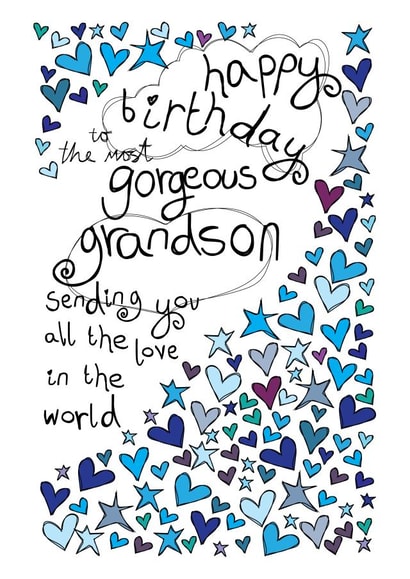 happy
birthday
to
the most
gorgeous
grandson
sending you
all the love
in the
world